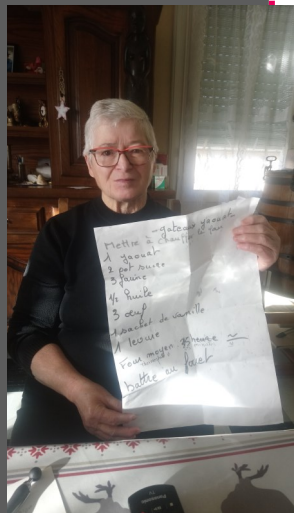 - gateau yaourt
Mettre à chauffer le four
1 yaourt
2 pot sucre
3 farine
1/2 huile
3 œuf
1 sachet de vanille
1 levure
Four moyen heure
Battre au fouet